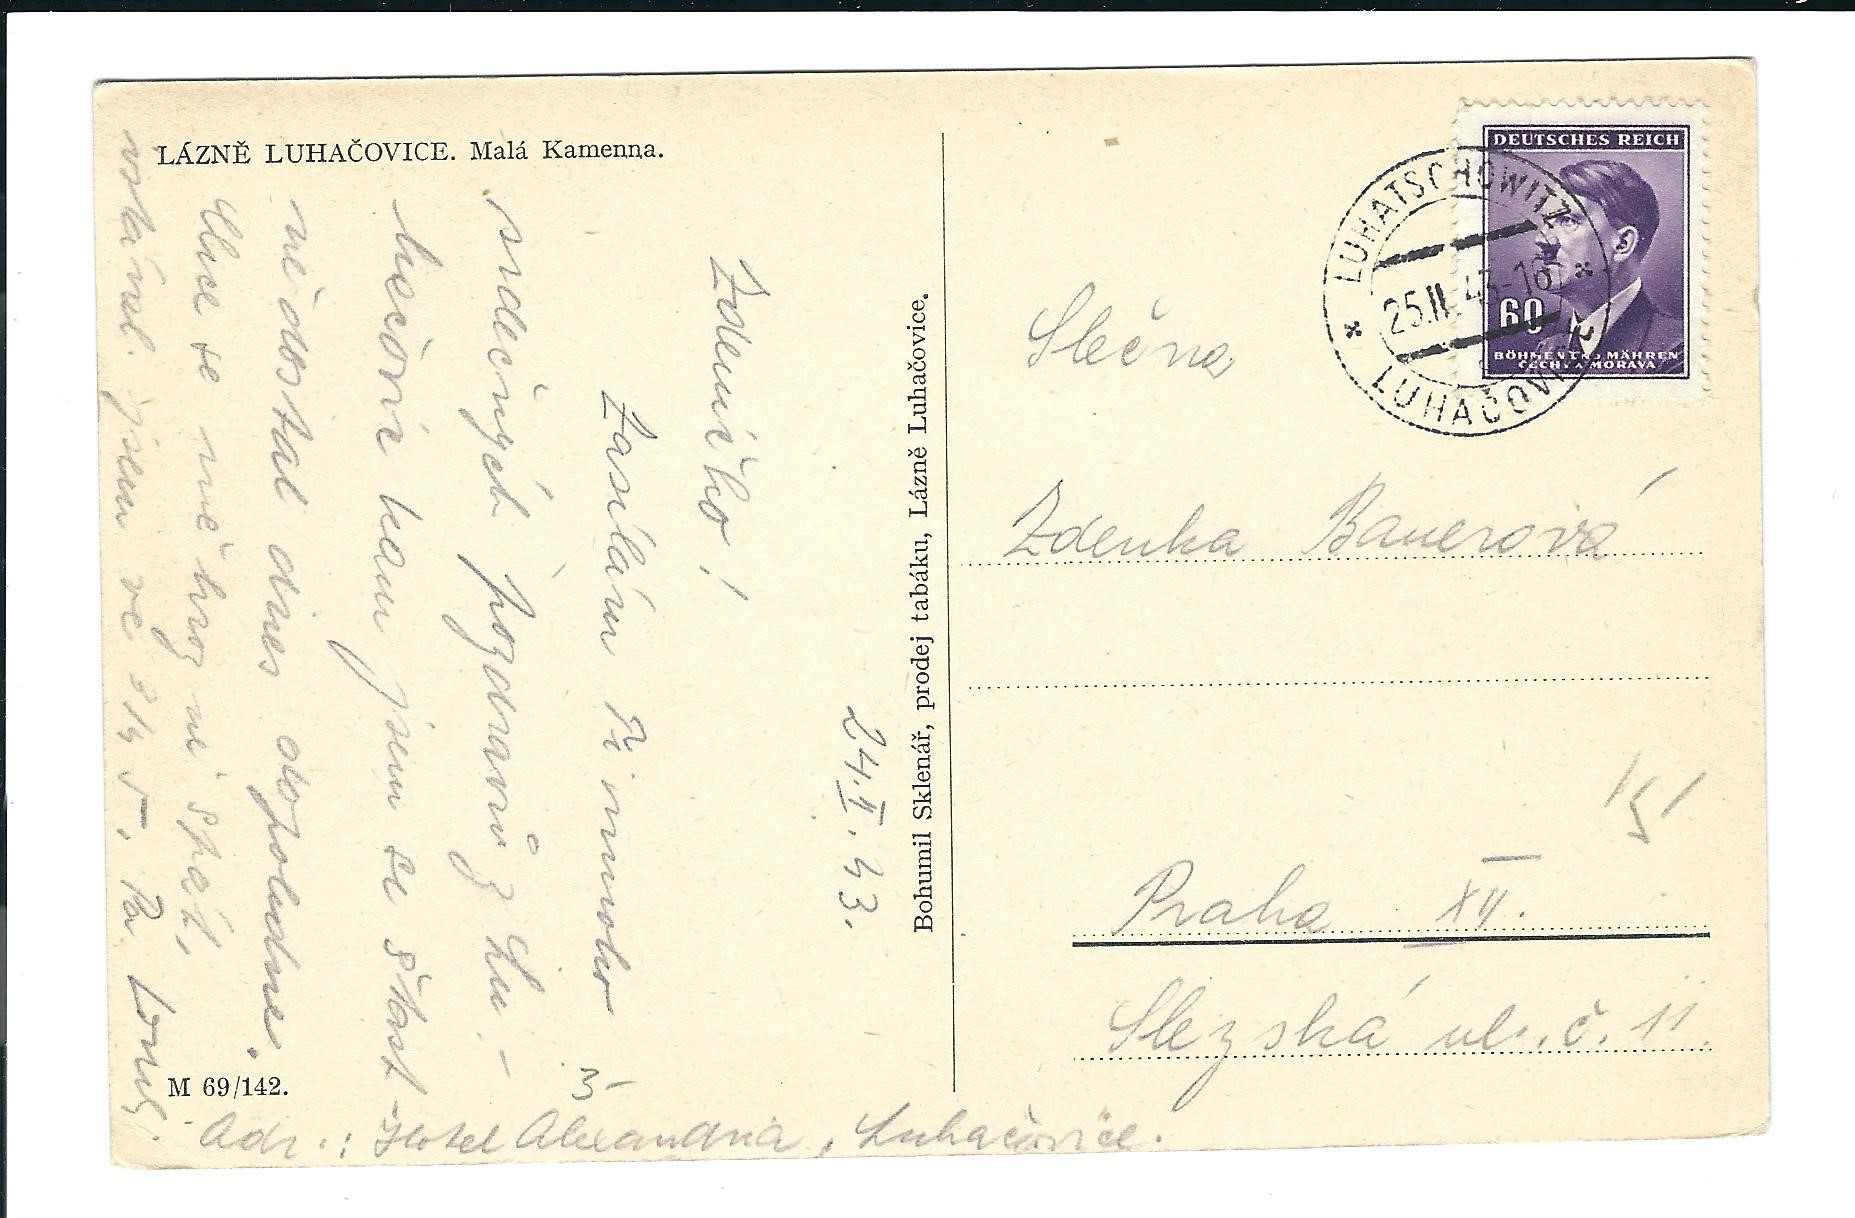 LÁZNĚ LUHAČOVICE. Malá Kamenna.
24.II.43.
Zdeničko!
Zasílám Ti mnoho
srdečných pozdravů z Lu-
hačovic kam jsem se šťast-
ně dostal dnes dopoledne.
Chce se mě hrozně spát,
vstával jsem ve 3/4 5. Pa
Adr.: Hotel Alexandria, Luhačovice.
M 69/142.
Bohumil Sklenář, prodej tabáku, Lázně Luhačovice.
DEUTSCHES REICH
60
BÖHMEN UND MÄHREN
ČECHY A MORAVA
LUHATSCHOWITZ
25.II.43-16
LUHAČOVICE
Slečna
Zdenka Bauerová
Praha XII.
Slezská ul. č. 11.